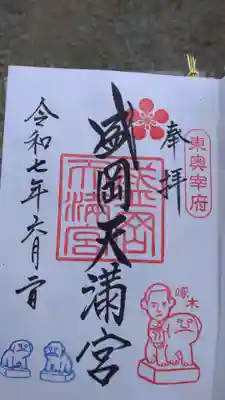 奉拝
東奥宰府
盛岡天満宮
盛岡
天満宮
啄木
令和七年六月一日